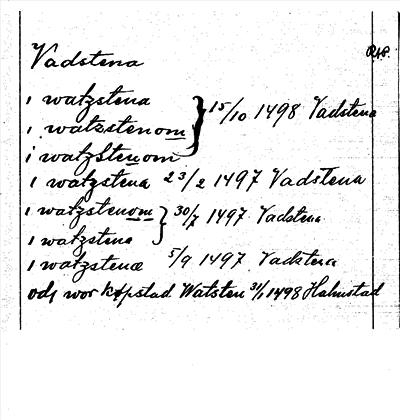 Vadstena
RAP.
i watzstena
i watzstenom } 15/10 1498 Vadstena
i watzstenom
i watzstena 23/2 1497 Vadstena
i watzstenom } 30/7 1497 Vadstena
i watzstena
i watzstenæ 5/9 1497 Vadstena
och wor köpstad Watsten 31/1 1498 Halmstad